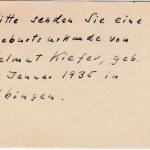 itte senden Sie eine
eburtsurkunde von
elmut Kiefer, geb.
. Januar 1935 in
übingen.